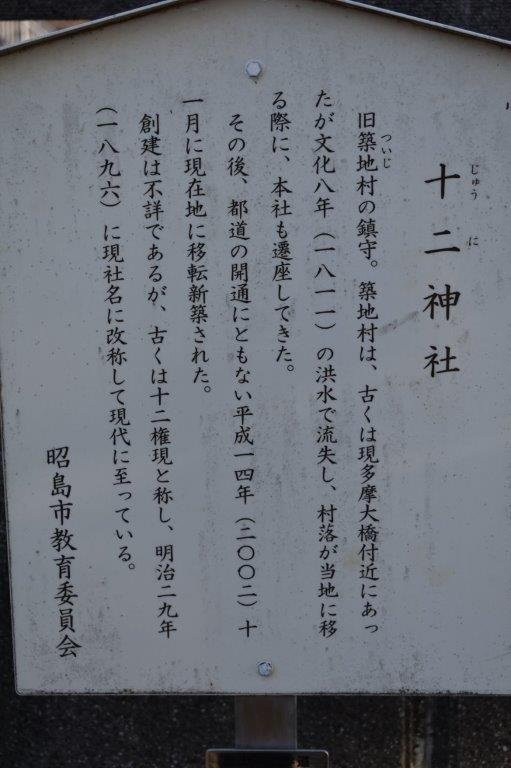 十二神社
じゅう に
旧築地村の鎮守。築地村は、古くは現多摩大橋付近にあっ
ついじ
たが文化八年（一八一一）の洪水で流失し、村落が当地に移
る際に、本社も遷座してきた。
その後、都道の開通にともない平成一四年（二〇〇二）十
一月に現在地に移転新築された。
創建は不詳であるが、古くは十二権現と称し、明治二九年
（一八九六）に現社名に改称して現代に至っている。
昭島市教育委員会